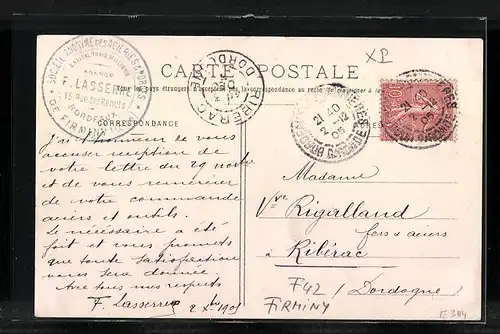 XP
CARTE POSTALE
Tous les pays étrangers n'acceptent pas la correspondance au recto
SOCIÉTÉ ANONYME DES ACIÉRIES & FORGES
DE FIRMINY
AGENCE
F. LASSERRE
BORDEAUX
RIBERAC
DORDOGNE
21 40
2 -12
05
BORDEAUX GIRONDE
CORRESPONDANCE
J'ai l'honneur de vous
accuser réception de
votre lettre du 29 nov
et de vous remercier
de votre commande
aciers et outils.
Le nécessaire a été
fait et vous promets
que toute satisfaction
vous sera donnée
Avec tous mes respects
F. Lasserre
2 Xbre 1905
Madame
Vve Rigalland
fers & aciers
à Ribérac
F42 / Dordogne
FIRMINY
E344